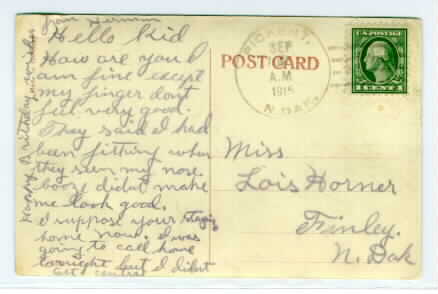 from Herman
Hello Kid
How are you I
am fine except
my finger dont
feel very good.
They said I had
been fitting when
they seen my nose
booze didnt make
me look good.
I suppose your staying
home now. I was
going to call home
tonight but I didnt
get central
Happy Birthday
POST CARD
SEP
A.M
1915
N.DAK.
U.S. POSTAGE
Miss
Lois Horner
Finley.
N. Dak